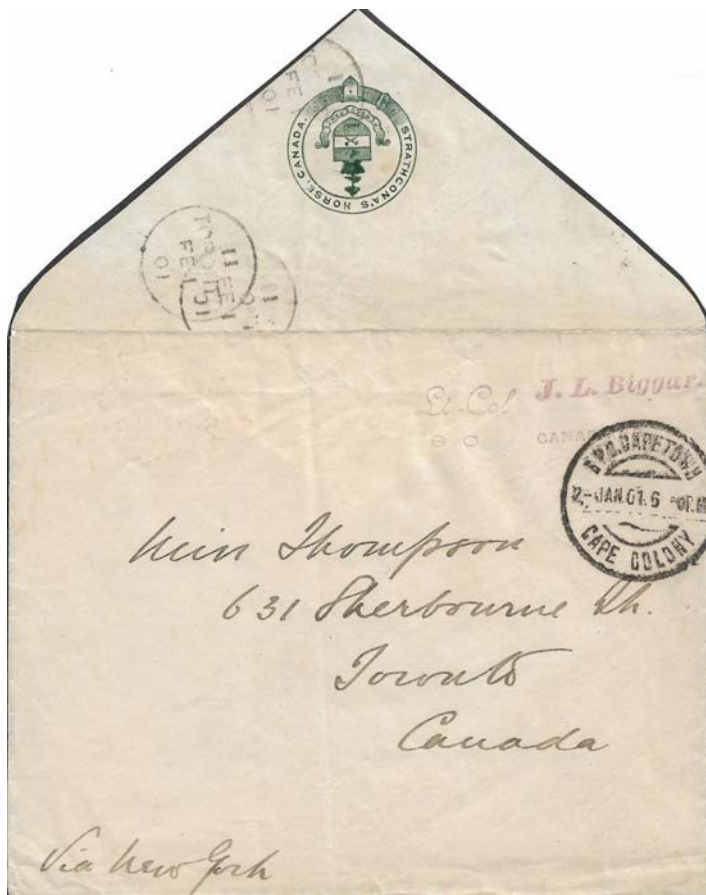 STRATHCONA'S HORSE, CANADA.
11
FE 1
01
11
TORONTO
FE 1
01
Lt-Col J. L. Biggar.
G.P.O. CAPETOWN
2-JAN.01.6
CAPE COLONY
Miss Thompson
631 Sherbourne Sh.
Toronto
Canada
Via New York